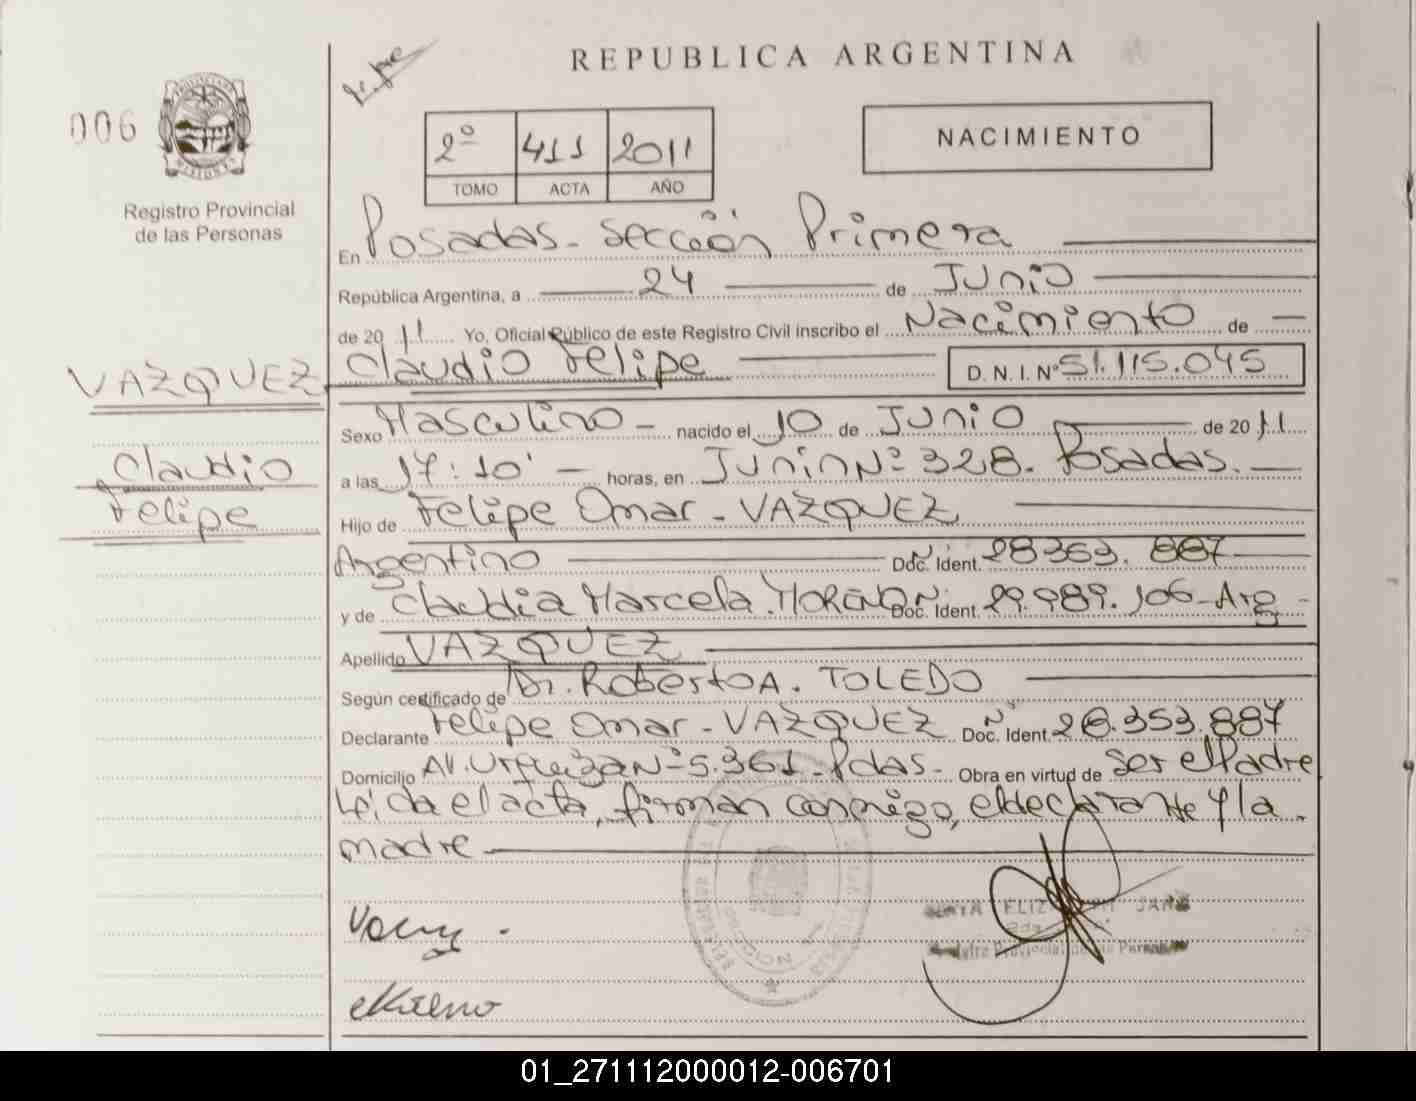 REPUBLICA ARGENTINA
006
2º 411 2011
TOMO ACTA AÑO
NACIMIENTO
Registro Provincial
de las Personas
En Posadas - Sección Primera
República Argentina, a 24 de Junio
de 2011 Yo, Oficial Público de este Registro Civil inscribo el Nacimiento de
VAZQUEZ Claudio Felipe D. N. I. Nº 51.115.045
Sexo Masculino - nacido el 10 de Junio de 2011
Claudio
a las 17:10' - horas, en Junin Nº 328. Posadas.
Felipe
Hijo de Felipe Omar - VAZQUEZ
Argentino Doc. Ident. 28363.887
y de Claudia Marcela MORENO Doc. Ident. 29.989.106 - Arg -
Apellido VAZQUEZ
Según certificado de Dr. Roberto A. TOLEDO
Declarante Felipe Omar - VAZQUEZ Doc. Ident. 28.353.887
Domicilio AV. Urquiza Nº 5.361 - Pdas - Obra en virtud de Ser el Padre
Leida el acta, firman conmigo, el declarante y la
madre
01_271112000012-006701